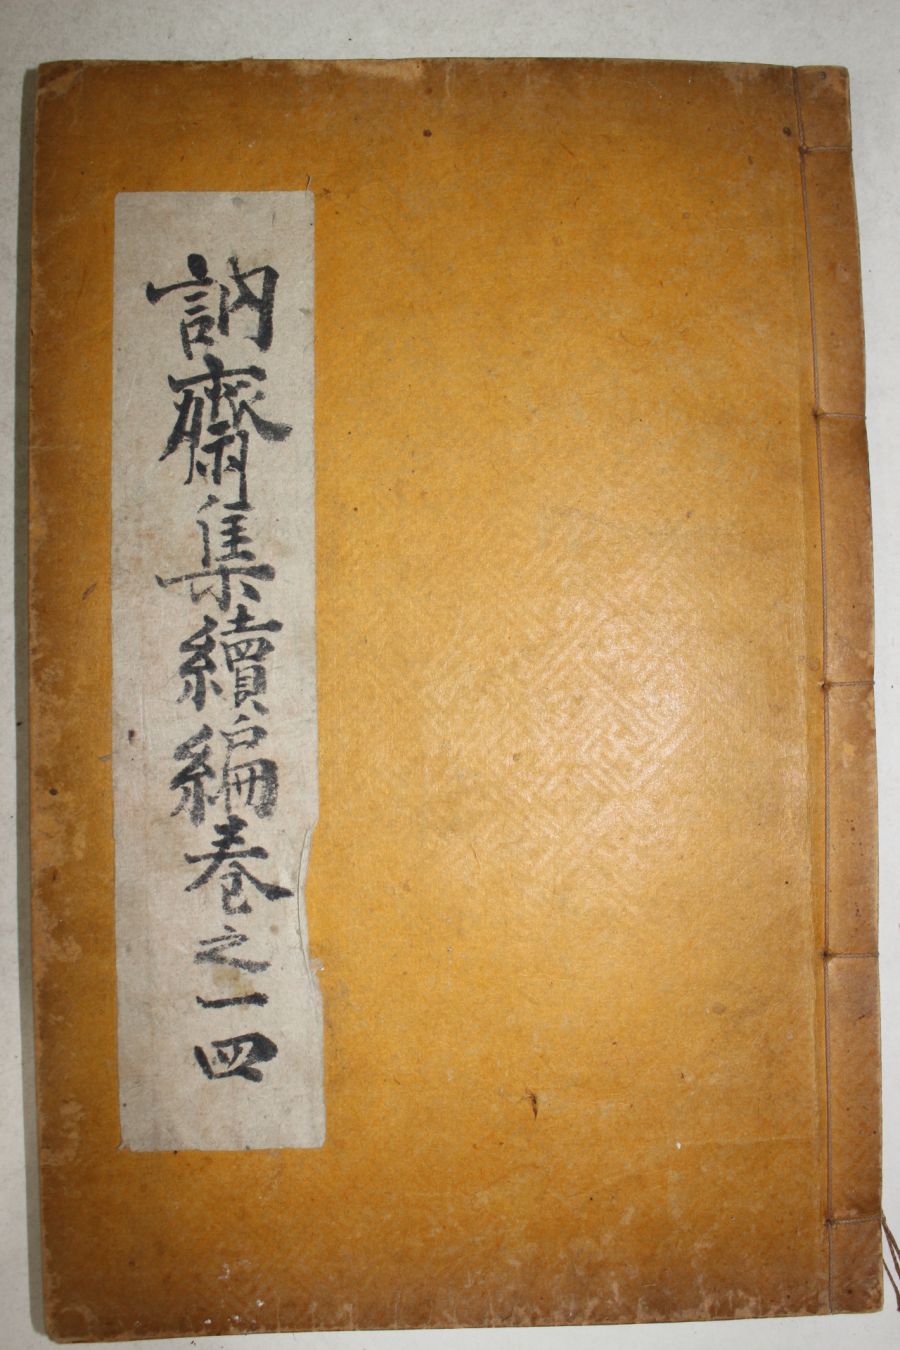 訥齋集續編卷之一四